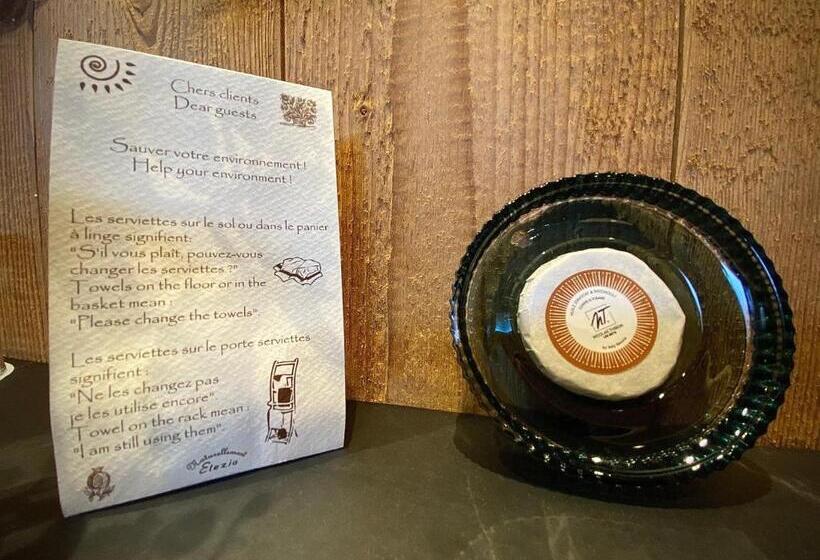 Chers clients
Dear guests
Sauver votre environnement !
Help your environment !
Les serviettes sur le sol ou dans le panier
à linge signifient:
"S'il vous plaît, pouvez-vous
changer les serviettes ?"
Towels on the floor or in the
basket mean :
"Please change the towels".
Les serviettes sur le porte serviettes
signifient :
"Ne les changez pas
je les utilise encore"
Towel on the rack mean :
"I am still using them".
Naturellement
Elezia
NT